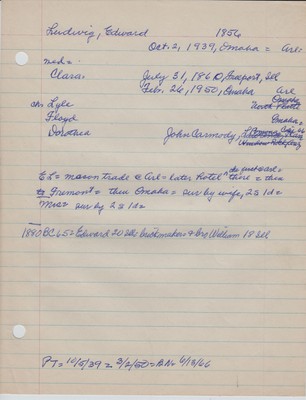 Ludwig, Edward 1856
Oct. 2, 1939, Omaha = Arl=
md =
Clara, July 31, 1860, Freeport, Ill
Feb. 26, 1950, Omaha Arl
ch= Lyle Omaha
North Platte
Floyd Omaha=
Dorothea John Carmody,
EL= mason trade @ Arl= later hotel there = then
to Fremont = then Omaha = sur by wife, 2 s 1 d=
Mrs= sur by 2 s 1 d=
1880 BC 65= Edward 20 Ills brickmaker & bro William 18 Ill
PT= 10/5/39 = 3/2/50 = BN= 4/13/66